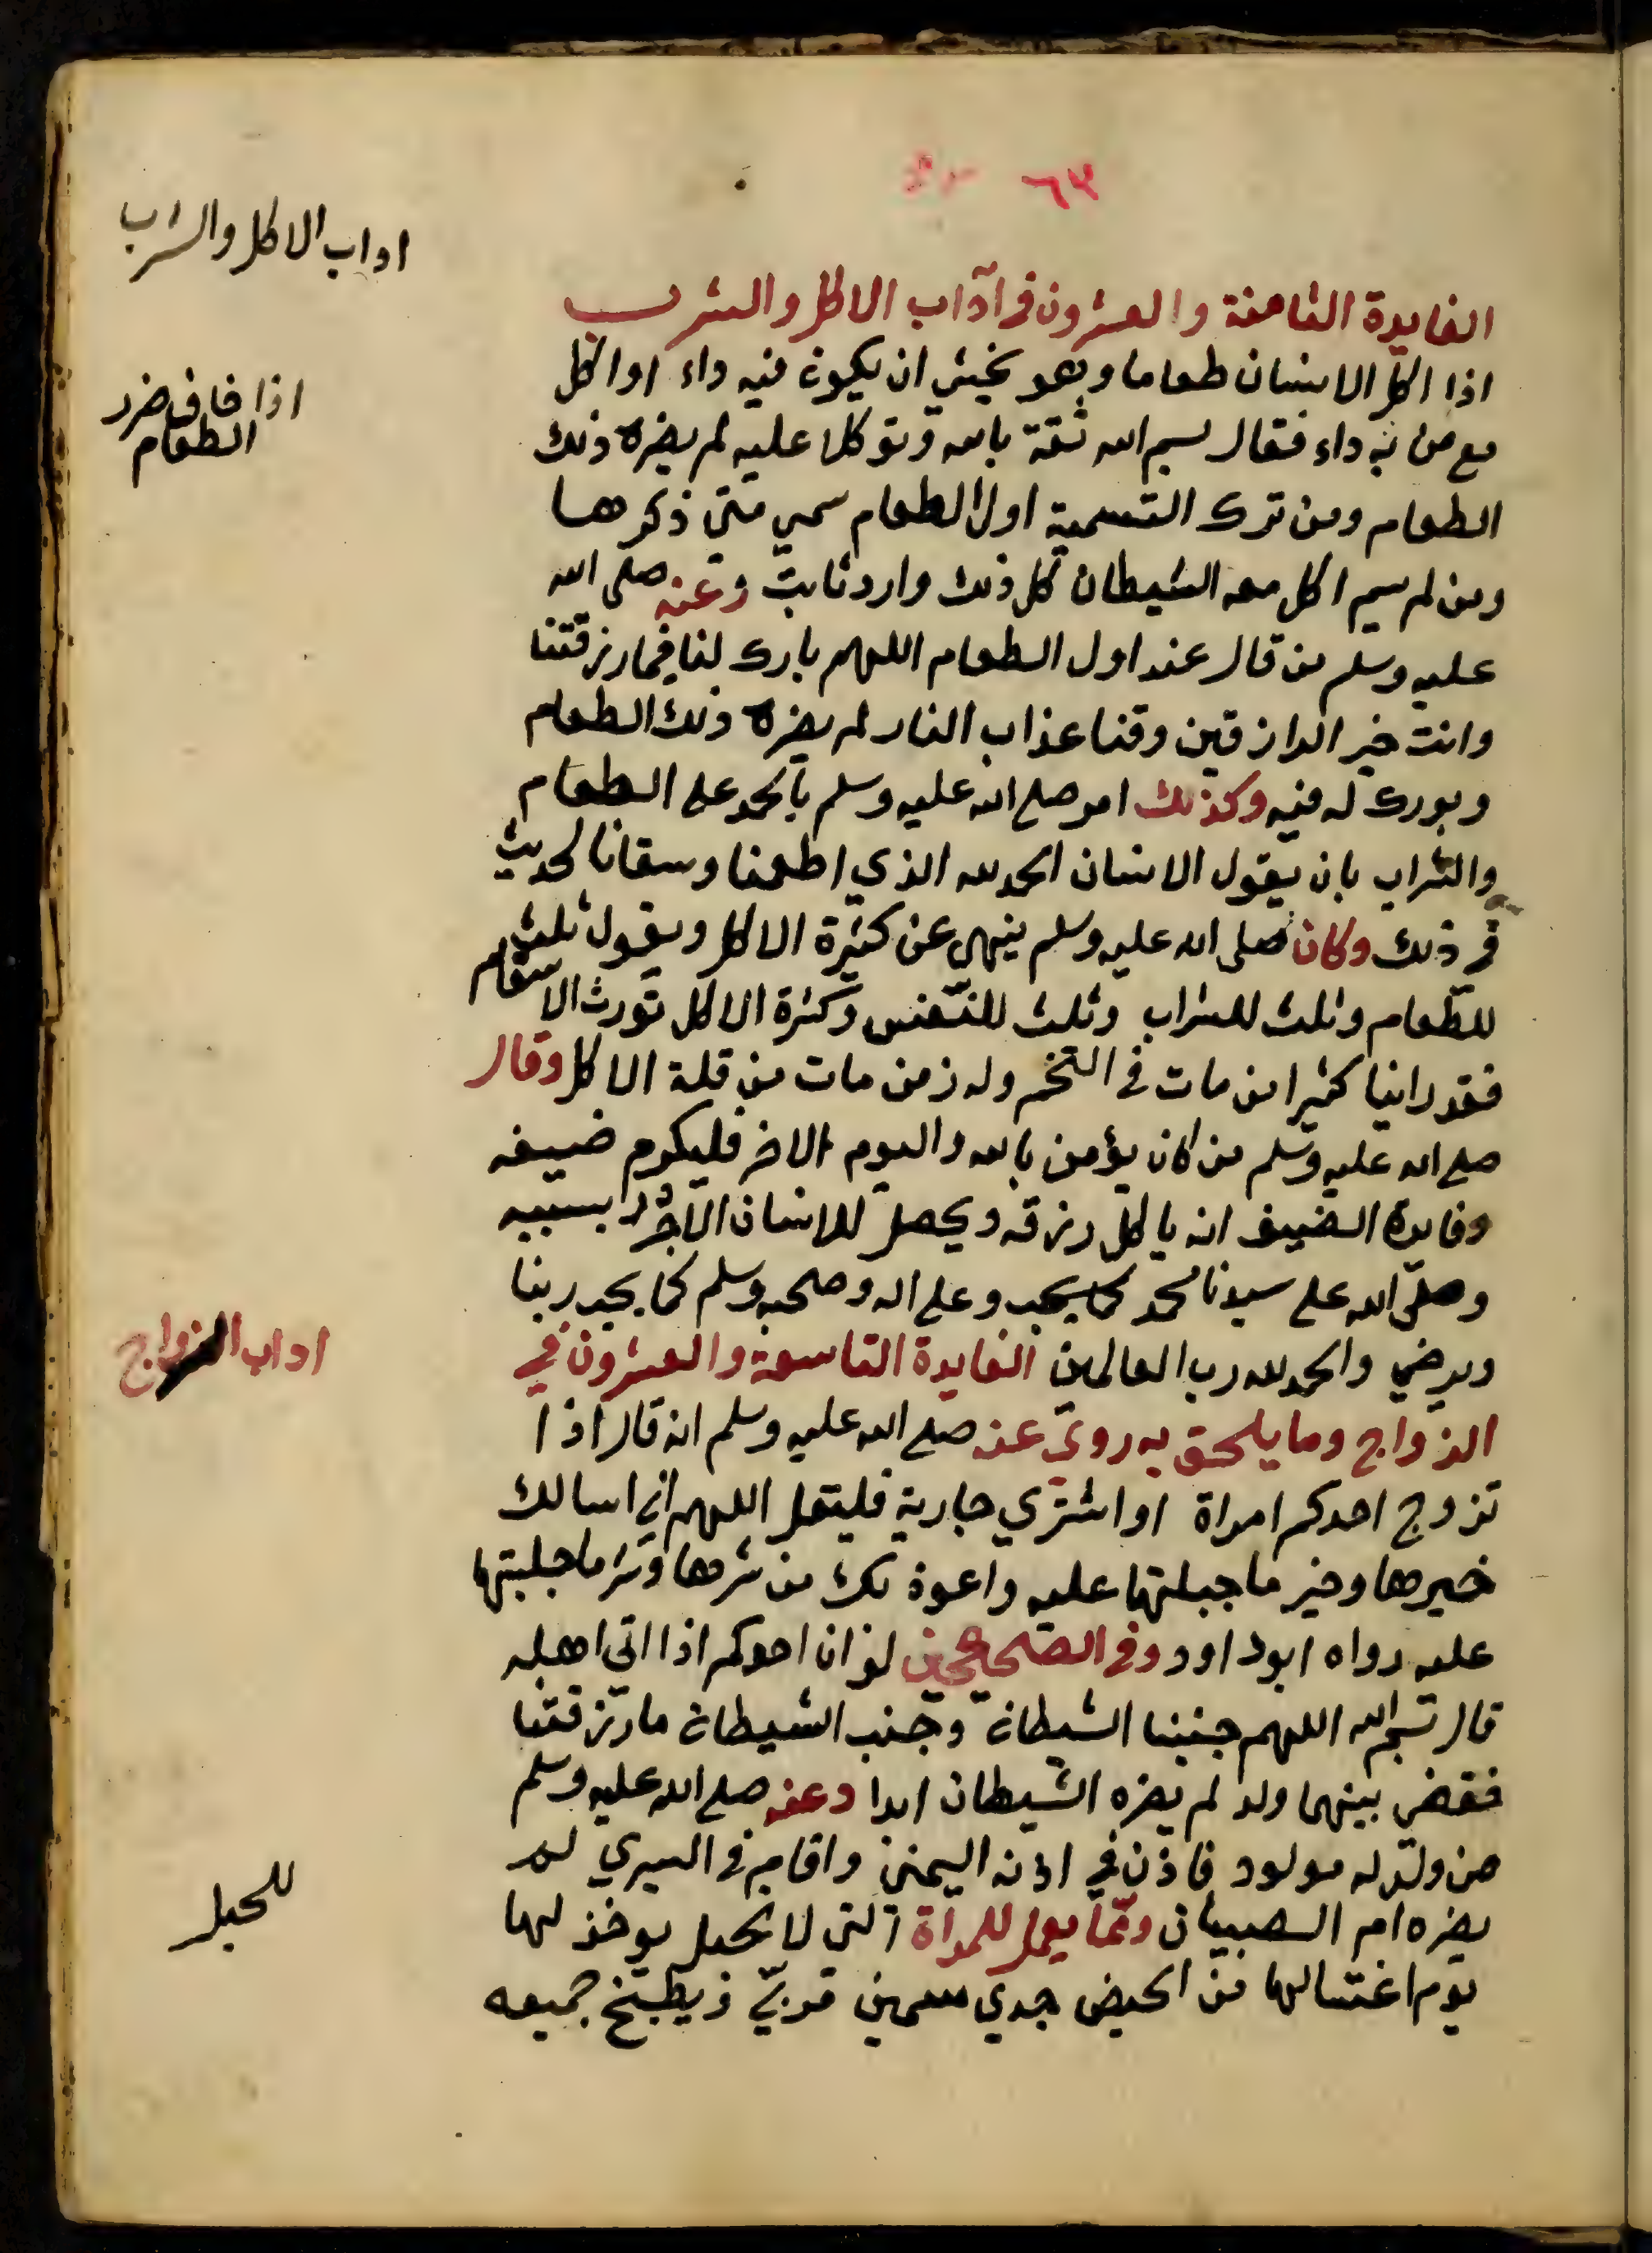 ٦٣
اداب الاكل والشراب
الفايدة الثامنة والعشرون في آداب الاكل والشرب
اذا اكل الانسان طعاما وهو يخشي ان يكون فيه داء او اكل
اذا خاف ضرر
الطعام
مع من به داء فقال بسم الله ثقة بالله وتوكلا عليه لم يضره ذلك
الطعام ومن ترك التسمية اول الطعام سمي متي ذكرها
ومن لم يسم اكل معه الشيطان كل ذلك وارد ثابت وعنه صلى الله
عليه وسلم من قال عند اول الطعام اللهم بارك لنا فيما رزقتنا
وانت خير الرازقين وقنا عذاب النار لم يضره ذلك الطعام
وبورك له فيه وكذلك امر صلى الله عليه وسلم بالحمد على الطعام
والشراب بان يقول الانسان الحمد لله الذي اطعمنا وسقانا لحديث
في ذلك وكان صلى الله عليه وسلم ينهي عن كثرة الاكل ويقول ثلث
للطعام وثلث للشراب وثلث للنفس وكثرة الاكل تورث الاسقام
فقد راينا كثيرا من مات في التخم ولم نر من مات من قلة الاكل وقال
صلى الله عليه وسلم من كان يؤمن بالله واليوم الاخر فليكرم ضيفه
وفايدة الضيف انه ياكل رزقه ويحصل للانسان الاجر بسببه
وصلى الله على سيدنا محمد كما يحب وعلى اله وصحبه وسلم كما يحب ربنا
ويرضي والحمد لله رب العالمين الفايدة التاسعة والعشرون في
اداب الزواج
الزواج وما يلحق به روي عنه صلى الله عليه وسلم انه قال اذا
تزوج احدكم امراة او اشتري جارية فليقل اللهم اني اسالك
خيرها وخير ما جبلتها عليه واعوذ بك من شرها وشر ما جبلتها
عليه رواه ابو داود وفي الصحيحين لو ان احدكم اذا اتي اهله
قال بسم الله اللهم جنبنا الشيطان وجنب الشيطان ما رزقتنا
فقضي بينهما ولد لم يضره الشيطان ابدا وعنه صلى الله عليه وسلم
من ولد له مولود فاذن في اذنه اليمني واقام في اليسري لم
يضره ام الصبيان ومما يعمل للمراة التي لا تحبل يوخذ لها
للحبل
يوم اغتسالها من الحيض جدي سمين ويطبخ جميعه